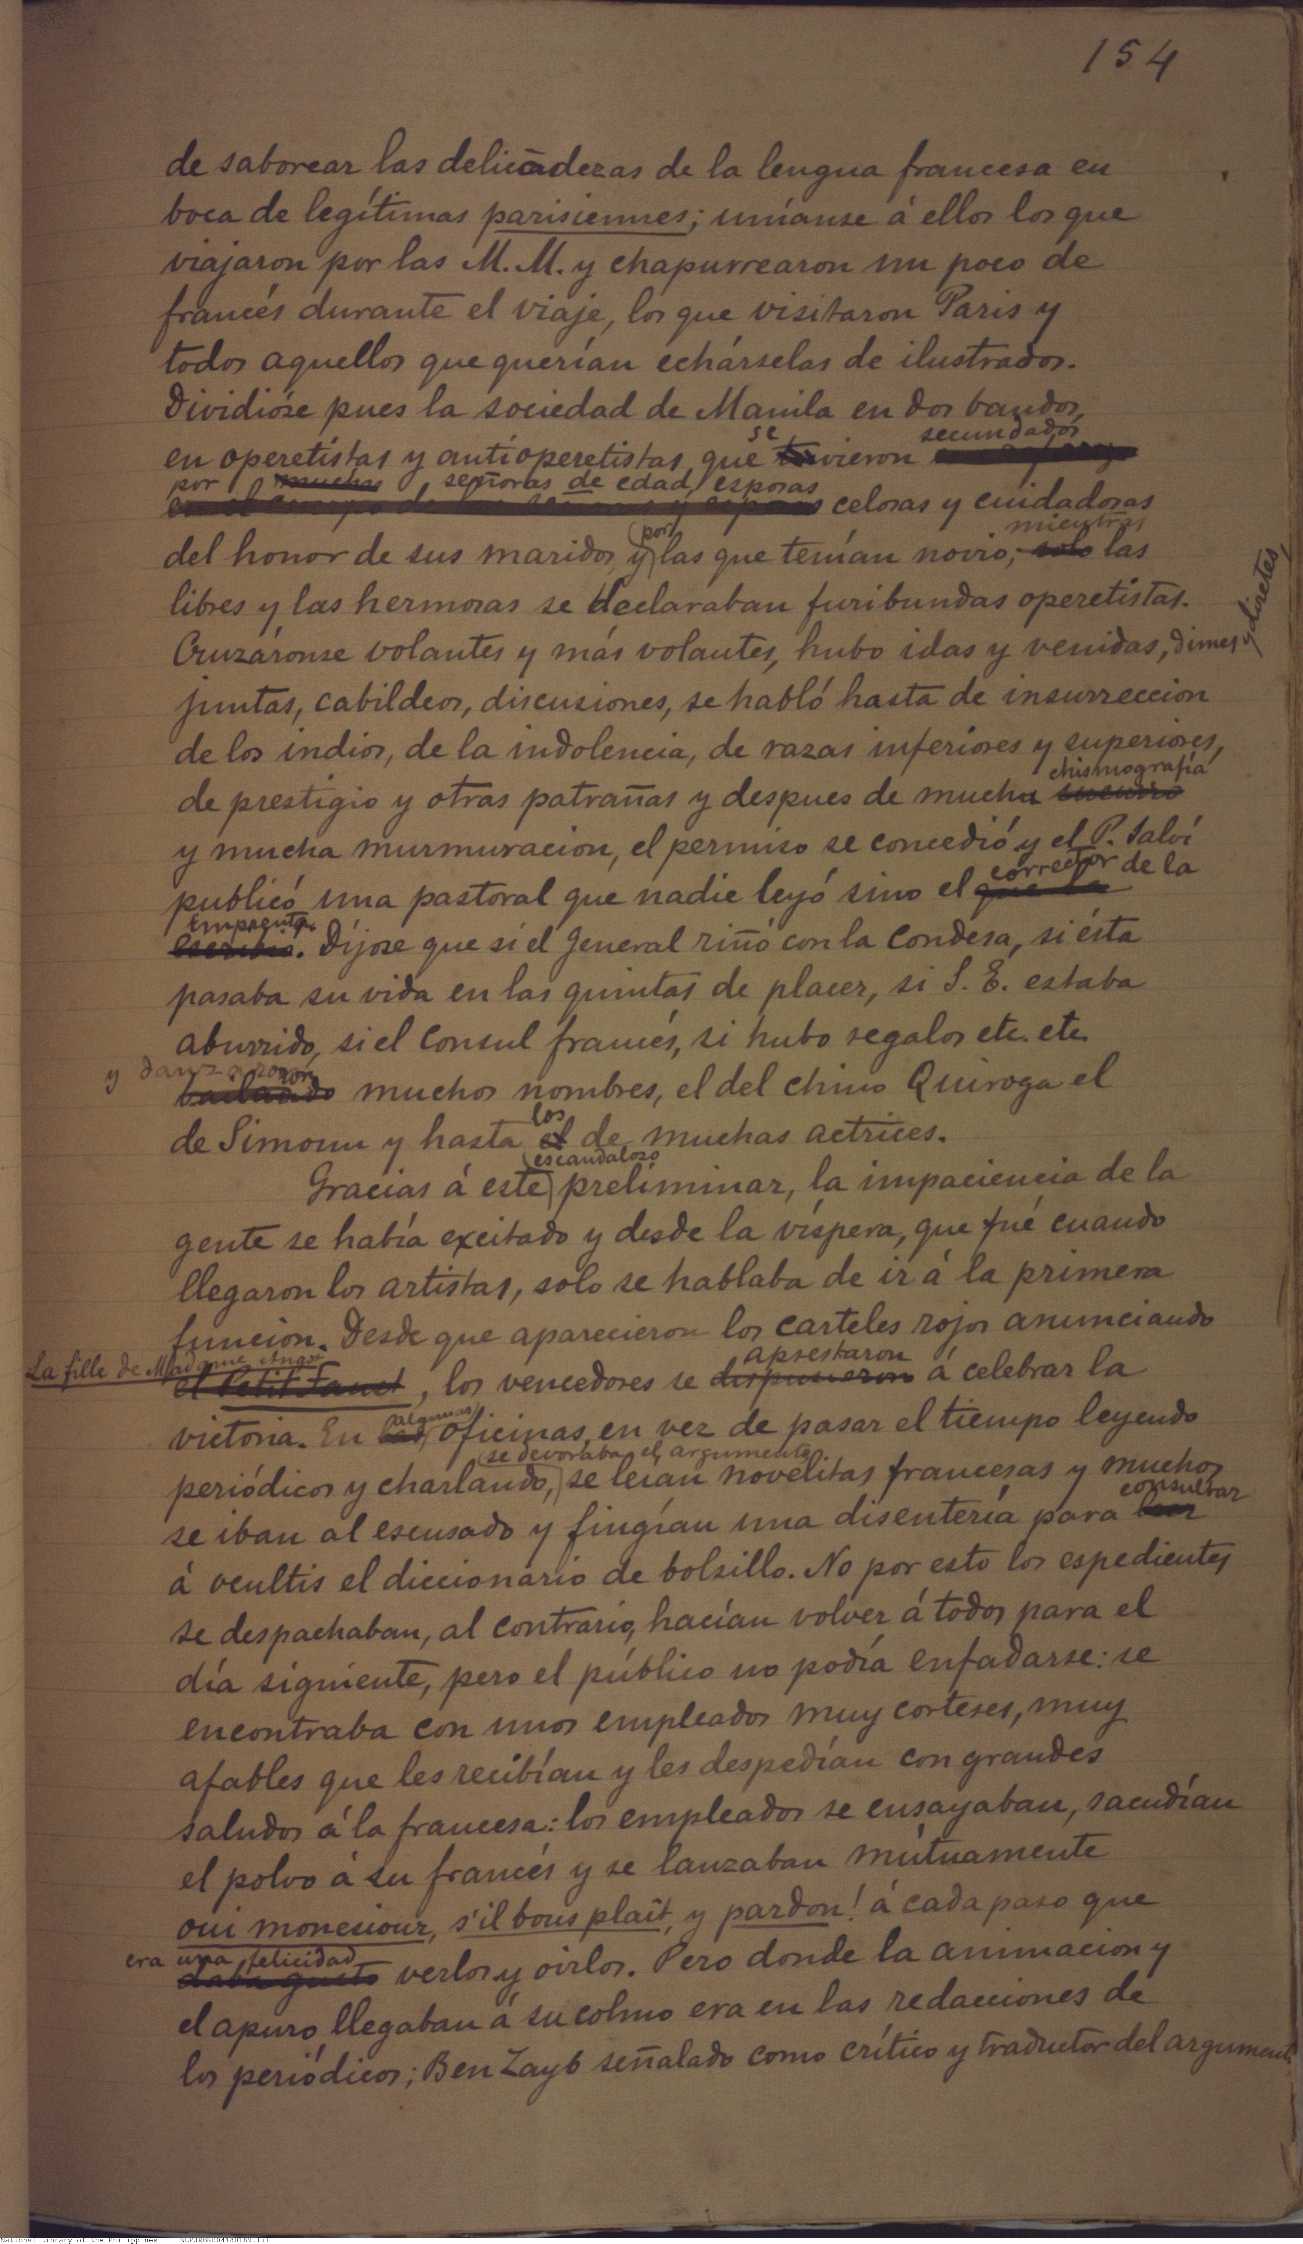 154
de saborear las delicadezas de la lengua francesa en
boca de legítimas parisiennes; uníanse á ellos los que
viajaron por las M. M. y chapurrearon un poco de
francés durante el viaje, los que visitaron Paris y
todos aquellos que querían echárselas de ilustrados.
Dividióse pues la sociedad de Manila en dos bandos,
en operetistas y antioperetistas, que se vieron secundados
por señoras de edad, esposas celosas y cuidadosas
del honor de sus maridos, y por las que tenían novio; mientras las
libres y las hermosas se declaraban furibundas operetistas.
Cruzáronse volantes y más volantes, hubo idas y venidas, dimes y diretes,
juntas, cabildeos, discusiones, se habló hasta de insurreccion
de los indios, de la indolencia, de razas inferiores y superiores,
de prestigio y otras patrañas y despues de mucha chismografía
y mucha murmuracion, el permiso se concedió y el P. Salví
publicó una pastoral que nadie leyó sino el corrector de la
imprenta. Díjose que si el General riñó con la Condesa, si ésta
pasaba su vida en las quintas de placer, si S. E. estaba
aburrido, si el Consul francés, si hubo regalos etc. etc.
y danzaron muchos nombres, el del chino Quiroga el
de Simoun y hasta los de muchas actrices.
Gracias á este escandaloso preliminar, la impaciencia de la
gente se había excitado y desde la víspera, que fué cuando
llegaron los artistas, solo se hablaba de ir á la primera
funcion. Desde que aparecieron los carteles rojos anunciando
La fille de Madame Angot, los vencedores se aprestaron á celebrar la
victoria. En algunas oficinas, en vez de pasar el tiempo leyendo
periódicos y charlando, se devoraba el argumento, se leían novelitas francesas y muchos
se iban al escusado y fingían una disentería para consultar
á ocultis el diccionario de bolsillo. No por esto los espedientes
se despachaban, al contrario, hacían volver á todos para el
día siguiente, pero el público no podía enfadarse: se
encontraba con unos empleados muy corteses, muy
afables que les recibían y les despedían con grandes
saludos á la francesa: los empleados se ensayaban, sacudían
el polvo á su francés y se lanzaban mútuamente
oui monesiour, s'il bous plait, y pardon! á cada paso que
era una felicidad verlos y oirlos. Pero donde la animacion y
el apuro llegaban á su colmo era en las redacciones de
los periódicos; Ben Zayb señalado como crítico y traductor del argumento